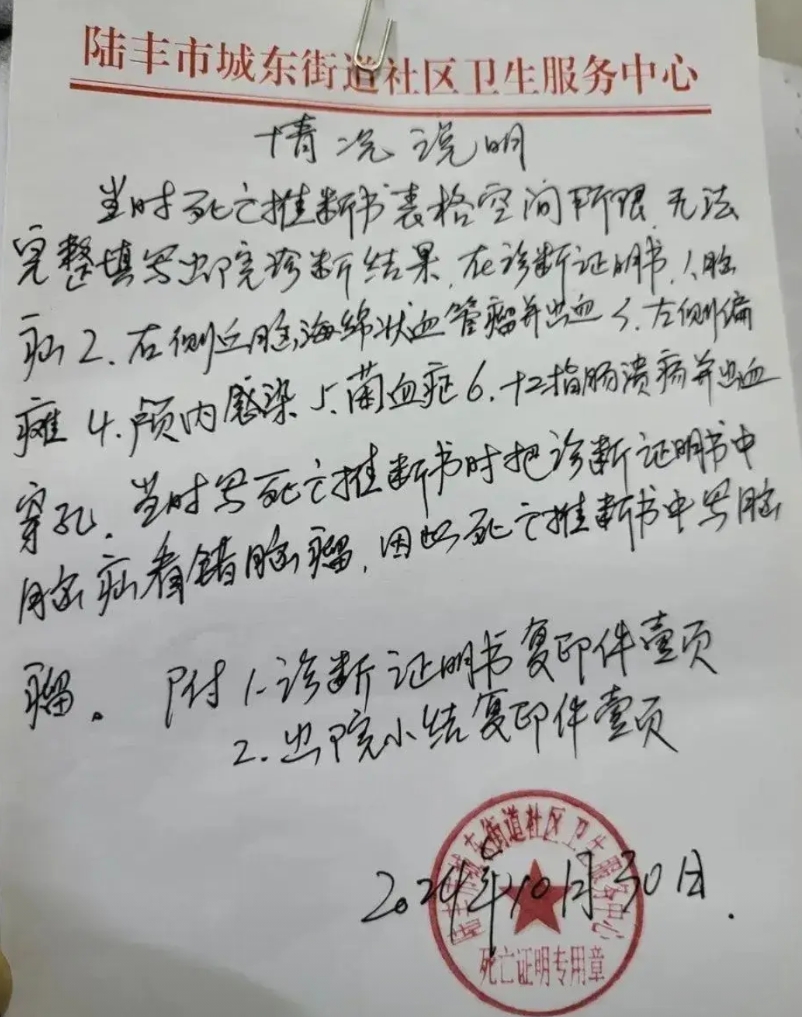 陆丰市城东街道社区卫生服务中心
情况说明
当时死亡推断书表格空间所限,无法
完整填写出院诊断结果,在诊断证明书,1.脑
疝2.右侧丘脑海绵状血管瘤并出血3.左侧偏
瘫4.颅内感染5.菌血症6.十二指肠溃疡并出血
穿孔,当时写死亡推断书时把诊断证明书中
脑疝看错脑瘤,因此死亡推断书中写脑
瘤。附1.诊断证明书复印件壹页
2.出院小结复印件壹页
陆丰市城东街道社区卫生服务中心
2024年10月30日.
死亡证明专用章